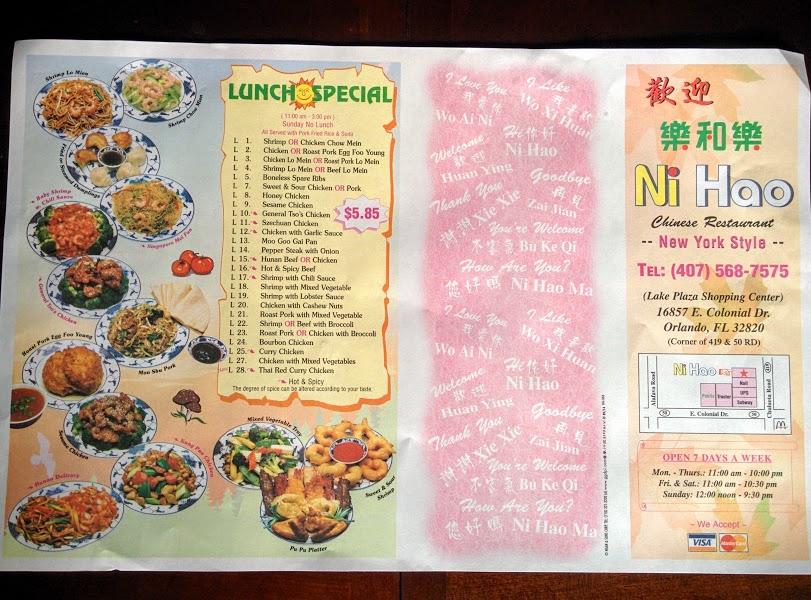 Shrimp Lo Mien
Shrimp Chow Mein
Baby Shrimp
Chili Sauce
Singapore Mei Fun
Moo Shu Pork
Roast Pork Egg Foo Young
Kung Pao Chicken
Hunan Delicacy
Mixed Vegetable Tray
Sweet & Sour
Shrimp
Pu Pu Platter
LUNCH SPECIAL
( 11:00 am - 3:00 pm )
Sunday No Lunch
All Served with Pork Fried Rice & Soda
L 1. Shrimp OR Chicken Chow Mein
L 2. Chicken OR Roast Pork Egg Foo Young
L 3. Chicken Lo Mein OR Roast Pork Lo Mein
L 4. Shrimp Lo Mein OR Beef Lo Mein
L 5. Boneless Spare Ribs
L 7. Sweet & Sour Chicken OR Pork
L 8. Honey Chicken
L 9. Sesame Chicken
L 10. General Tso's Chicken
L 11. Szechuan Chicken
L 12. Chicken with Garlic Sauce
L 13. Moo Goo Gai Pan
L 14. Pepper Steak with Onion
L 15. Hunan Beef OR Chicken
L 16. Hot & Spicy Beef
L 17. Shrimp with Chili Sauce
L 18. Shrimp with Mixed Vegetable
L 19. Shrimp with Lobster Sauce
L 20. Chicken with Cashew Nuts
L 21. Roast Pork with Mixed Vegetable
L 22. Shrimp OR Beef with Broccoli
L 23. Roast Pork OR Chicken with Broccoli
L 24. Bourbon Chicken
L 25. Curry Chicken
L 27. Chicken with Mixed Vegetables
L 28. Thai Red Curry Chicken
$5.85
Hot & Spicy
The degree of spice can be altered according to your taste.
I Love You
我愛你
Wo Ai Ni
I Like
我喜歡
Wo Xi Huan
Welcome
歡迎
Huan Ying
Hi 你好
Ni Hao
Thank You
謝謝 Xie Xie
Goodbye
再見
Zai Jian
You're Welcome
不客氣 Bu Ke Qi
How Are You?
您好嗎 Ni Hao Ma
I Love You
我愛你
Wo Ai Ni
I Like
我喜歡
Wo Xi Huan
Welcome
歡迎
Huan Ying
Hi 你好
Ni Hao
Thank You
謝謝 Xie Xie
Goodbye
再見
Zai Jian
You're Welcome
不客氣 Bu Ke Qi
How Are You?
您好嗎 Ni Hao Ma
歡迎
樂和樂
Ni Hao
Chinese Restaurant
-- New York Style --
TEL: (407) 568-7575
(Lake Plaza Shopping Center)
16857 E. Colonial Dr.
Orlando, FL 32820
(Corner of 419 & 50 RD)
Ni Hao
Nail
UPS
Subway
Publix
E. Colonial Dr.
50
50
419
OPEN 7 DAYS A WEEK
Mon. - Thurs.: 11:00 am - 10:00 pm
Fri. & Sat.: 11:00 am - 10:30 pm
Sunday: 12:00 noon - 9:30 pm
~ We Accept ~
VISA MasterCard